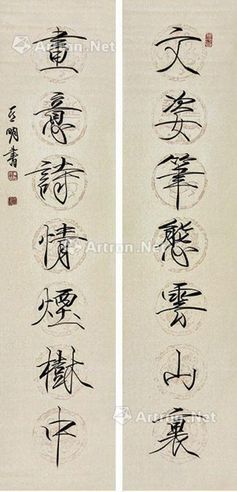 文姿筆態雲山裏
畫意詩情煙樹中
明書
Artron.Net
Artron.Net
Artron.Net
Artron.Net